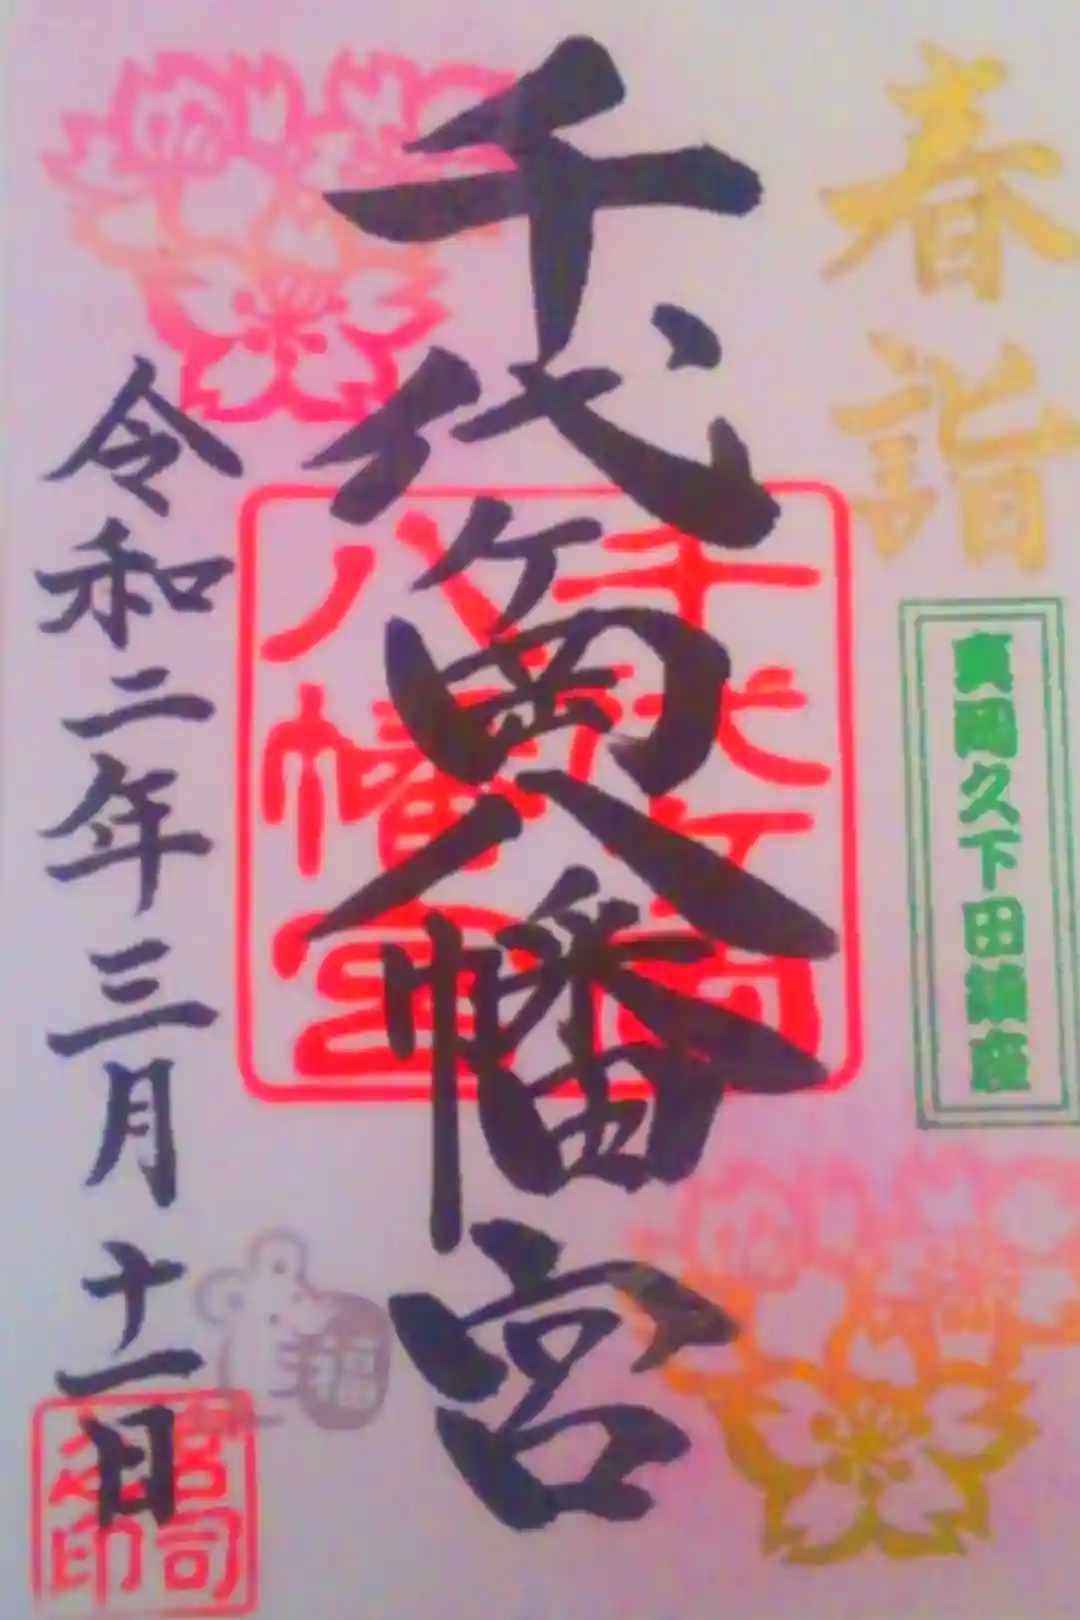 春詣
真岡久下田鎮座
千代ヶ岡八幡宮
千代ヶ岡
八幡宮
令和二年三月十一日
福
宮司
之印